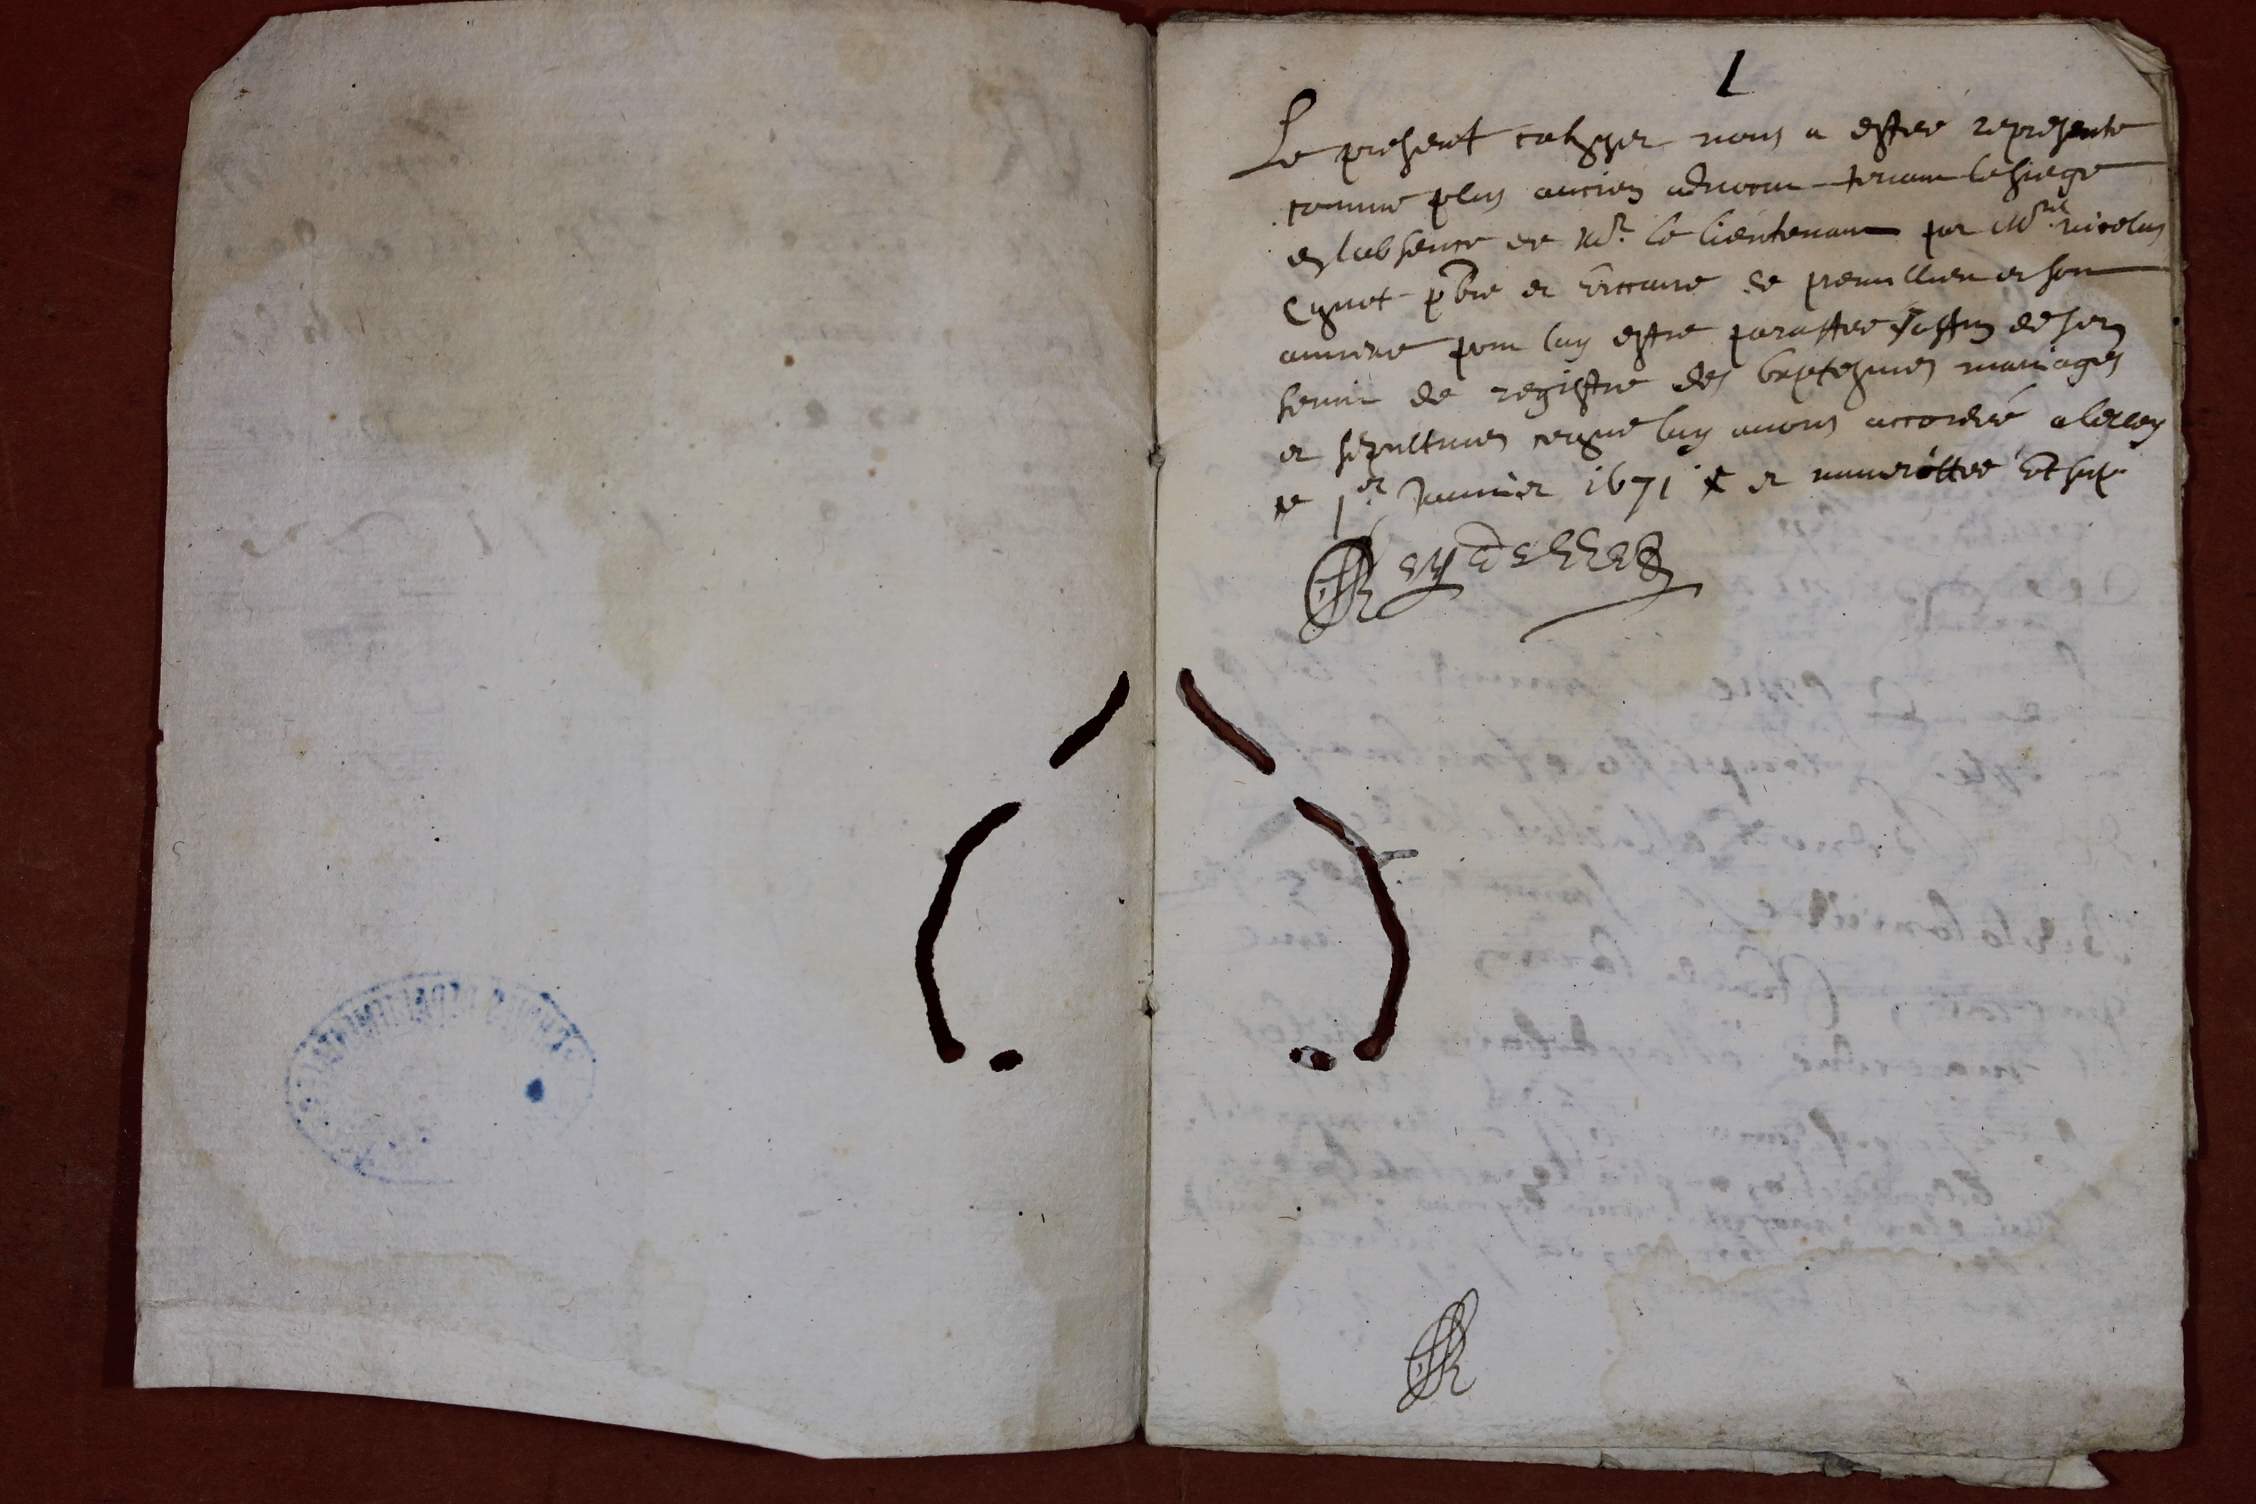 1
Le present cahyer nous a estee represente
comme plus ancien advocat tenant le siege
en labsence de Mr. le lieutenant par Mre nicolas
Cynet pbre et viccaire de premillieu et son
annexe pour luy estre paraffee affin de sen
servir de registre des baptesmes mariages
et sepultures ceque luy avons accordé a
ce 1er Janvier 1671 et numerottee
Reydellet
R